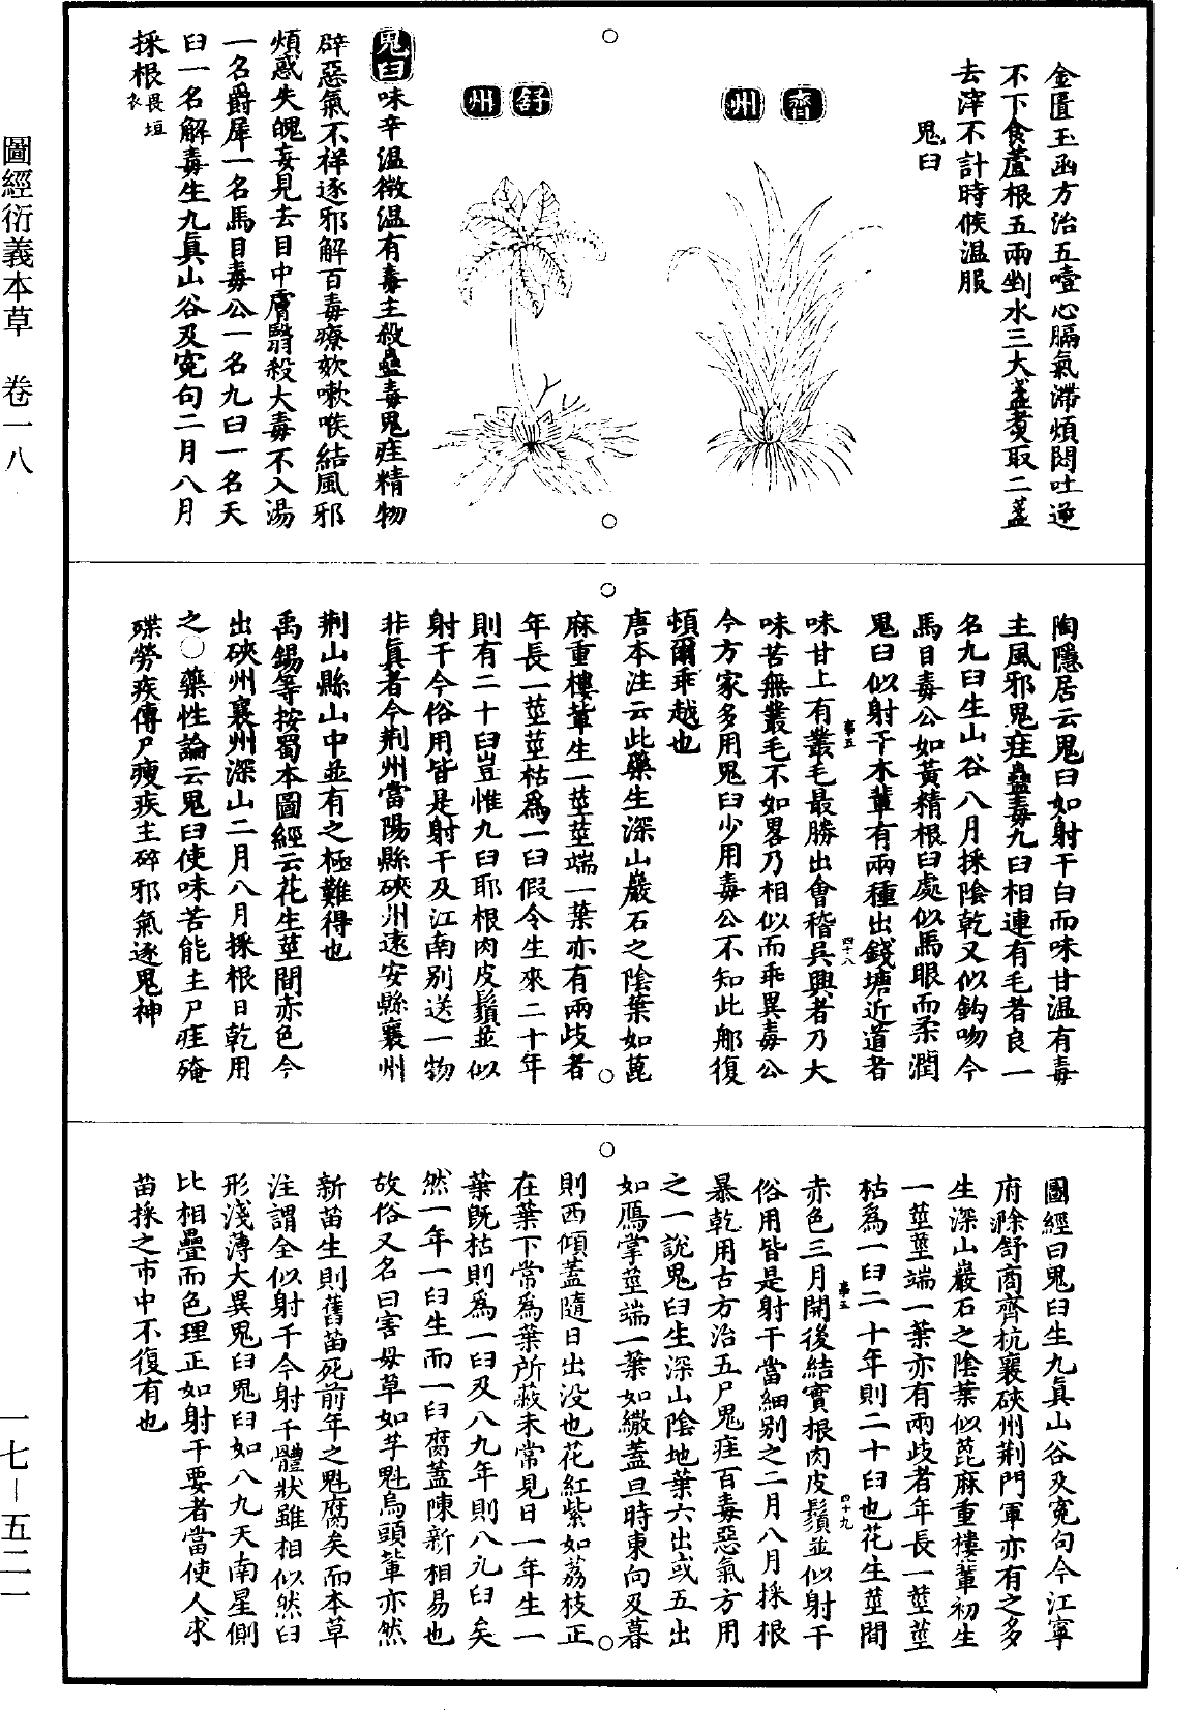 金匱玉函方治五噎心膈氣滯煩悶吐逆
不下食蘆根五兩剉水三大盞煑取二盞
去滓不計時候温服
鬼臼
齊州
舒州
鬼臼味辛温微温有毒主殺蠱毒鬼疰精物
辟惡氣不祥逐邪解百毒療欬嗽喉結風邪
煩惑失魄妄見去目中膚翳殺大毒不入湯
一名爵犀一名馬目毒公一名九臼一名天
臼一名解毒生九真山谷及寃句二月八月
採根畏垣衣
陶隱居云鬼臼如射干白而味甘温有毒
主風邪鬼疰蠱毒九臼相連有毛者良一
名九臼生山谷八月採陰乾又似鈎吻今
馬目毒公如黃精根臼處似馬眼而柔潤
鬼臼似射干术輩有兩種出錢塘近道者
味甘上有叢毛最勝出會稽吳興者乃大
味苦無叢毛不如畧乃相似而乖異毒公
今方家多用鬼臼少用毒公不知此那復
頓爾乖越也
唐本注云此藥生深山巖石之陰葉如蓖
麻重樓輩生一莖莖端一葉亦有兩歧者
年長一莖莖枯爲一臼假令生來二十年
則有二十臼豈惟九臼耶根肉皮鬚並似
射干今俗用皆是射干及江南別送一物
非真者今荆州當陽縣硤州遠安縣襄州
荆山縣山中並有之極難得也
禹錫等按蜀本圖經云花生莖間赤色今
出硤州襄州深山二月八月採根日乾用
之○藥性論云鬼臼使味苦能主尸疰殗
殜勞疾傳尸瘦疾主碎邪氣逐鬼神
圖經曰鬼臼生九真山谷及寃句今江寧
府滁舒商齊杭襄硤州荆門軍亦有之多
生深山巖石之陰葉似蓖麻重樓輩初生
一莖莖端一葉亦有兩歧者年長一莖莖
枯爲一臼二十年則二十臼也花生莖間
赤色三月開後結實根肉皮鬚並似射干
俗用皆是射干當細別之二月八月採根
暴乾用古方治五尸鬼疰百毒惡氣方用
之一說鬼臼生深山陰地葉六出或五出
如鴈掌莖端一葉如繖蓋旦時東向及暮
則西傾蓋隨日出没也花紅紫如荔枝正
在葉下常爲葉所蔽未常見日一年生一
葉既枯則爲一臼及八九年則八九臼矣
然一年一臼生而一臼腐蓋陳新相易也
故俗又名曰害母草如芋魁烏頭輩亦然
新苗生則舊苗死前年之魁腐矣而本草
注謂全似射干今射干體狀雖相似然臼
形淺薄大異鬼臼鬼臼如八九天南星側
比相疊而色理正如射干要者當使人求
苗採之市中不復有也
圖經衍義本草 卷一八
一七—五二一